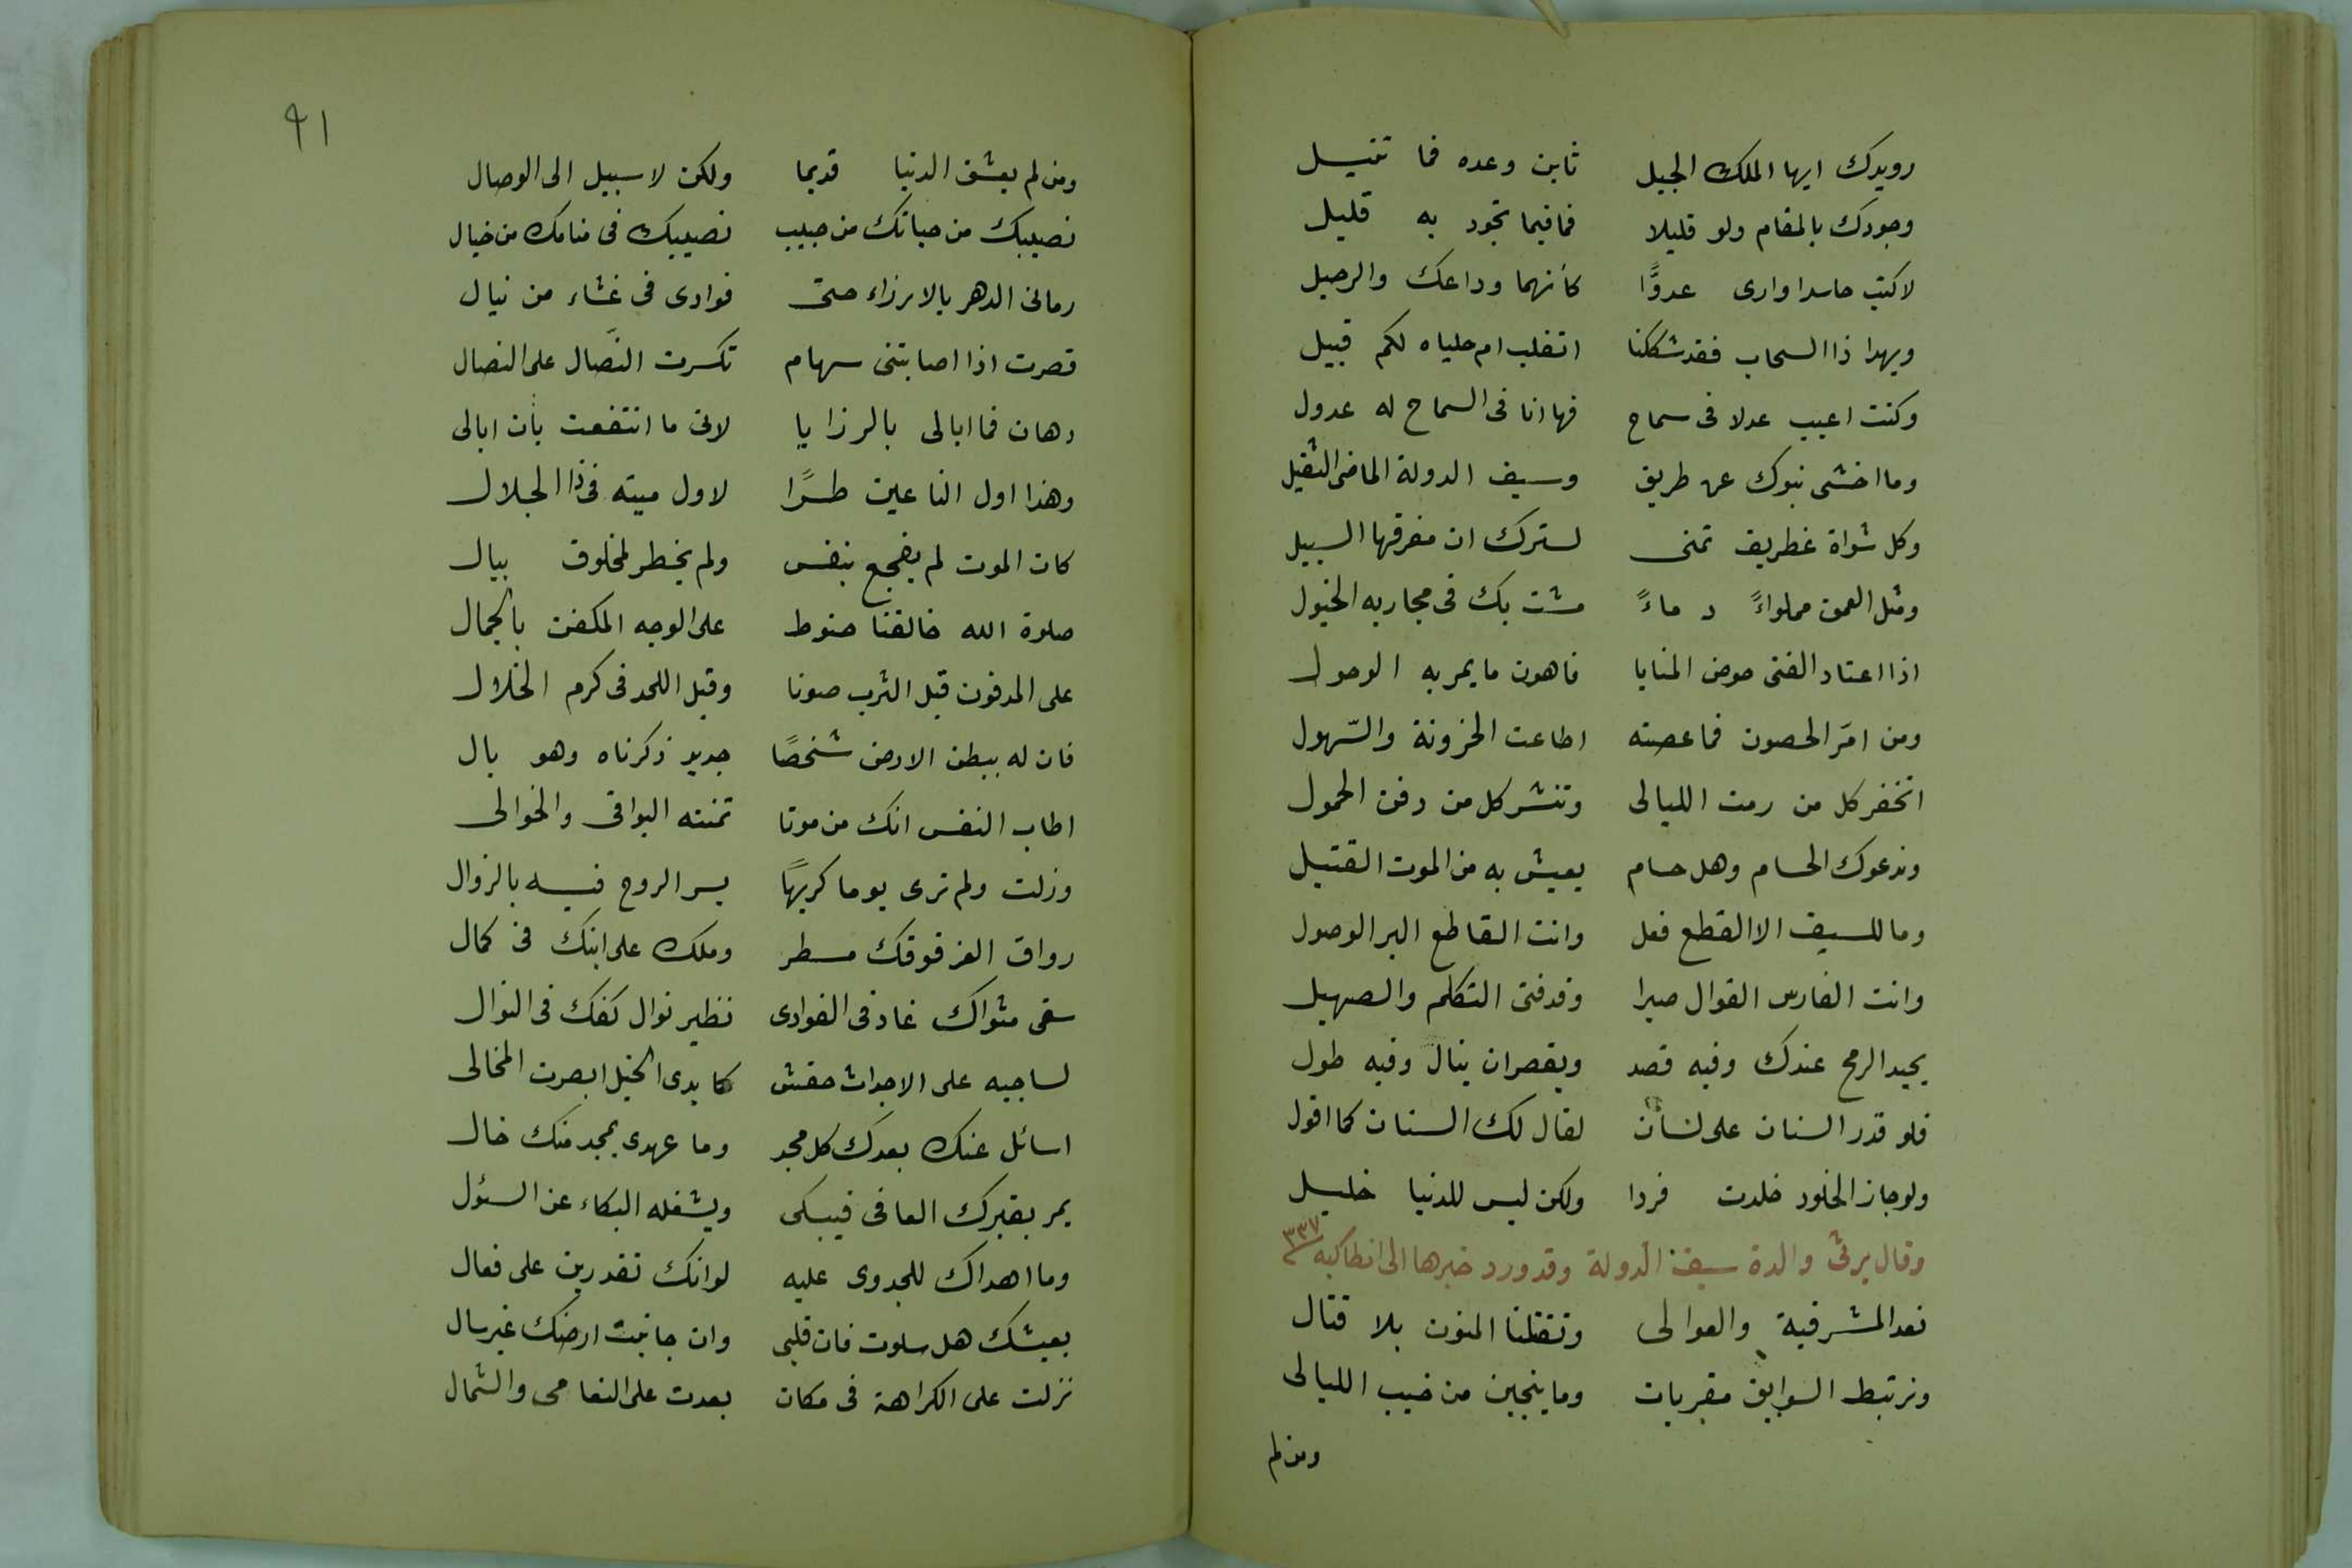 رويدك ايها الملك الجيل ثاين وعده فما تنيل
وجودك بالمقام ولو قليلا فما فيما تجود به قليل
لاكبت حاسدا وارى عدوًّا كأنهما وداعك والرحيل
ويهدا ذا السحاب فقد شككنا اتغلب ام حلياه لكم قبيل
وكنت اعيب عدلا فى سماح فها انا فى السماح له عدول
وما اخشى نبوك عن طريق وسيف الدولة الماضى الثقيل
وكل شواة غطريف تمنى لسترك ان مفرقها السبيل
ومثل العمق مملواءً دماءً مشت بك فى مجاريه الخيول
اذا اعتاد الفتى حوض المنايا فاهون ما يمر به الوحول
ومن امَر الحصون فما عصته اطاعت الحزونة والسّهول
اتخفر كل من رمت الليالى وتنشر كل من دفن الخمول
وندعوك الحسام وهل حسام يعيش به من الموت القتيل
وما للسيف الا القطع فعل وانت القاطع البر الوصول
وانت الفارس القوال صبرا وقد فنى التكلم والصهيل
يحيد الرمح عندك وفيه قصد ويقصر ان ينال وفيه طول
فلو قدر السنان على لسان لقال لك السنان كما اقول
ولو جاز الخلود خلدت فردا ولكن ليس للدنيا خليل
وقال يرثى والدة سيف الدولة وقد ورد خبرها الى انطاكيه ٣٣٧
نعد المشرفية والعوالى وتقتلنا المنون بلا قتال
ونرتبط السوابق مقربات وما ينجين من خبب الليالى
ومن لم
٩١
ومن لم يعشق الدنيا قديما ولكن لا سبيل الى الوصال
نصيبك من حياتك من حبيب نصيبك فى منامك من خيال
رمانى الدهر بالارزاء حتى فوادى فى غشاء من نبال
فصرت اذا اصابتنى سهام تكسرت النّصال على النصال
وهان فما ابالى بالرزايا لانى ما انتفعت بأن ابالى
وهذا اول الناعين طرًا لاول ميته فى ذا الجلال
كان الموت لم يفجع بنفس ولم يخطر لمخلوق ببال
صلوة الله خالقنا حنوط على الوجه المكفن بالجمال
على المدفون قبل الترب صونا وقبل اللحد فى كرم الخلال
فان له ببطن الارض شخصًا جديد ذكرناه وهو بال
اطاب النفس انك من موتا تمنته البواقى والخوالى
وزلت ولم ترى يوما كريهًا يسر الروح فيه بالزوال
رواق العز فوقك مسطر وملك على ابنك فى كمال
سقى مثواك غاد فى الغوادى نظير نوال كفك فى النوال
لساحيه على الاجداث حفش كايدى الخيل ابصرت المخالى
اسائل عنك بعدك كل مجد وما عهدى بمجد منك خال
يمر بقبرك العافى فيبكى ويشغله البكاء عن السئول
وما اهداك للجدوى عليه لو انك تقدرين على فعال
بعيشك هل سلوت فان قلبى وان جانبت ارضك غير سال
نزلت على الكراهة فى مكان بعدت على النعامى والشمال